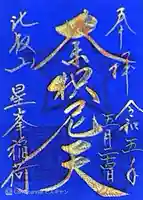 奉拝
令和五年
五月吉日
荼枳尼天
比叡山
星峯稲荷